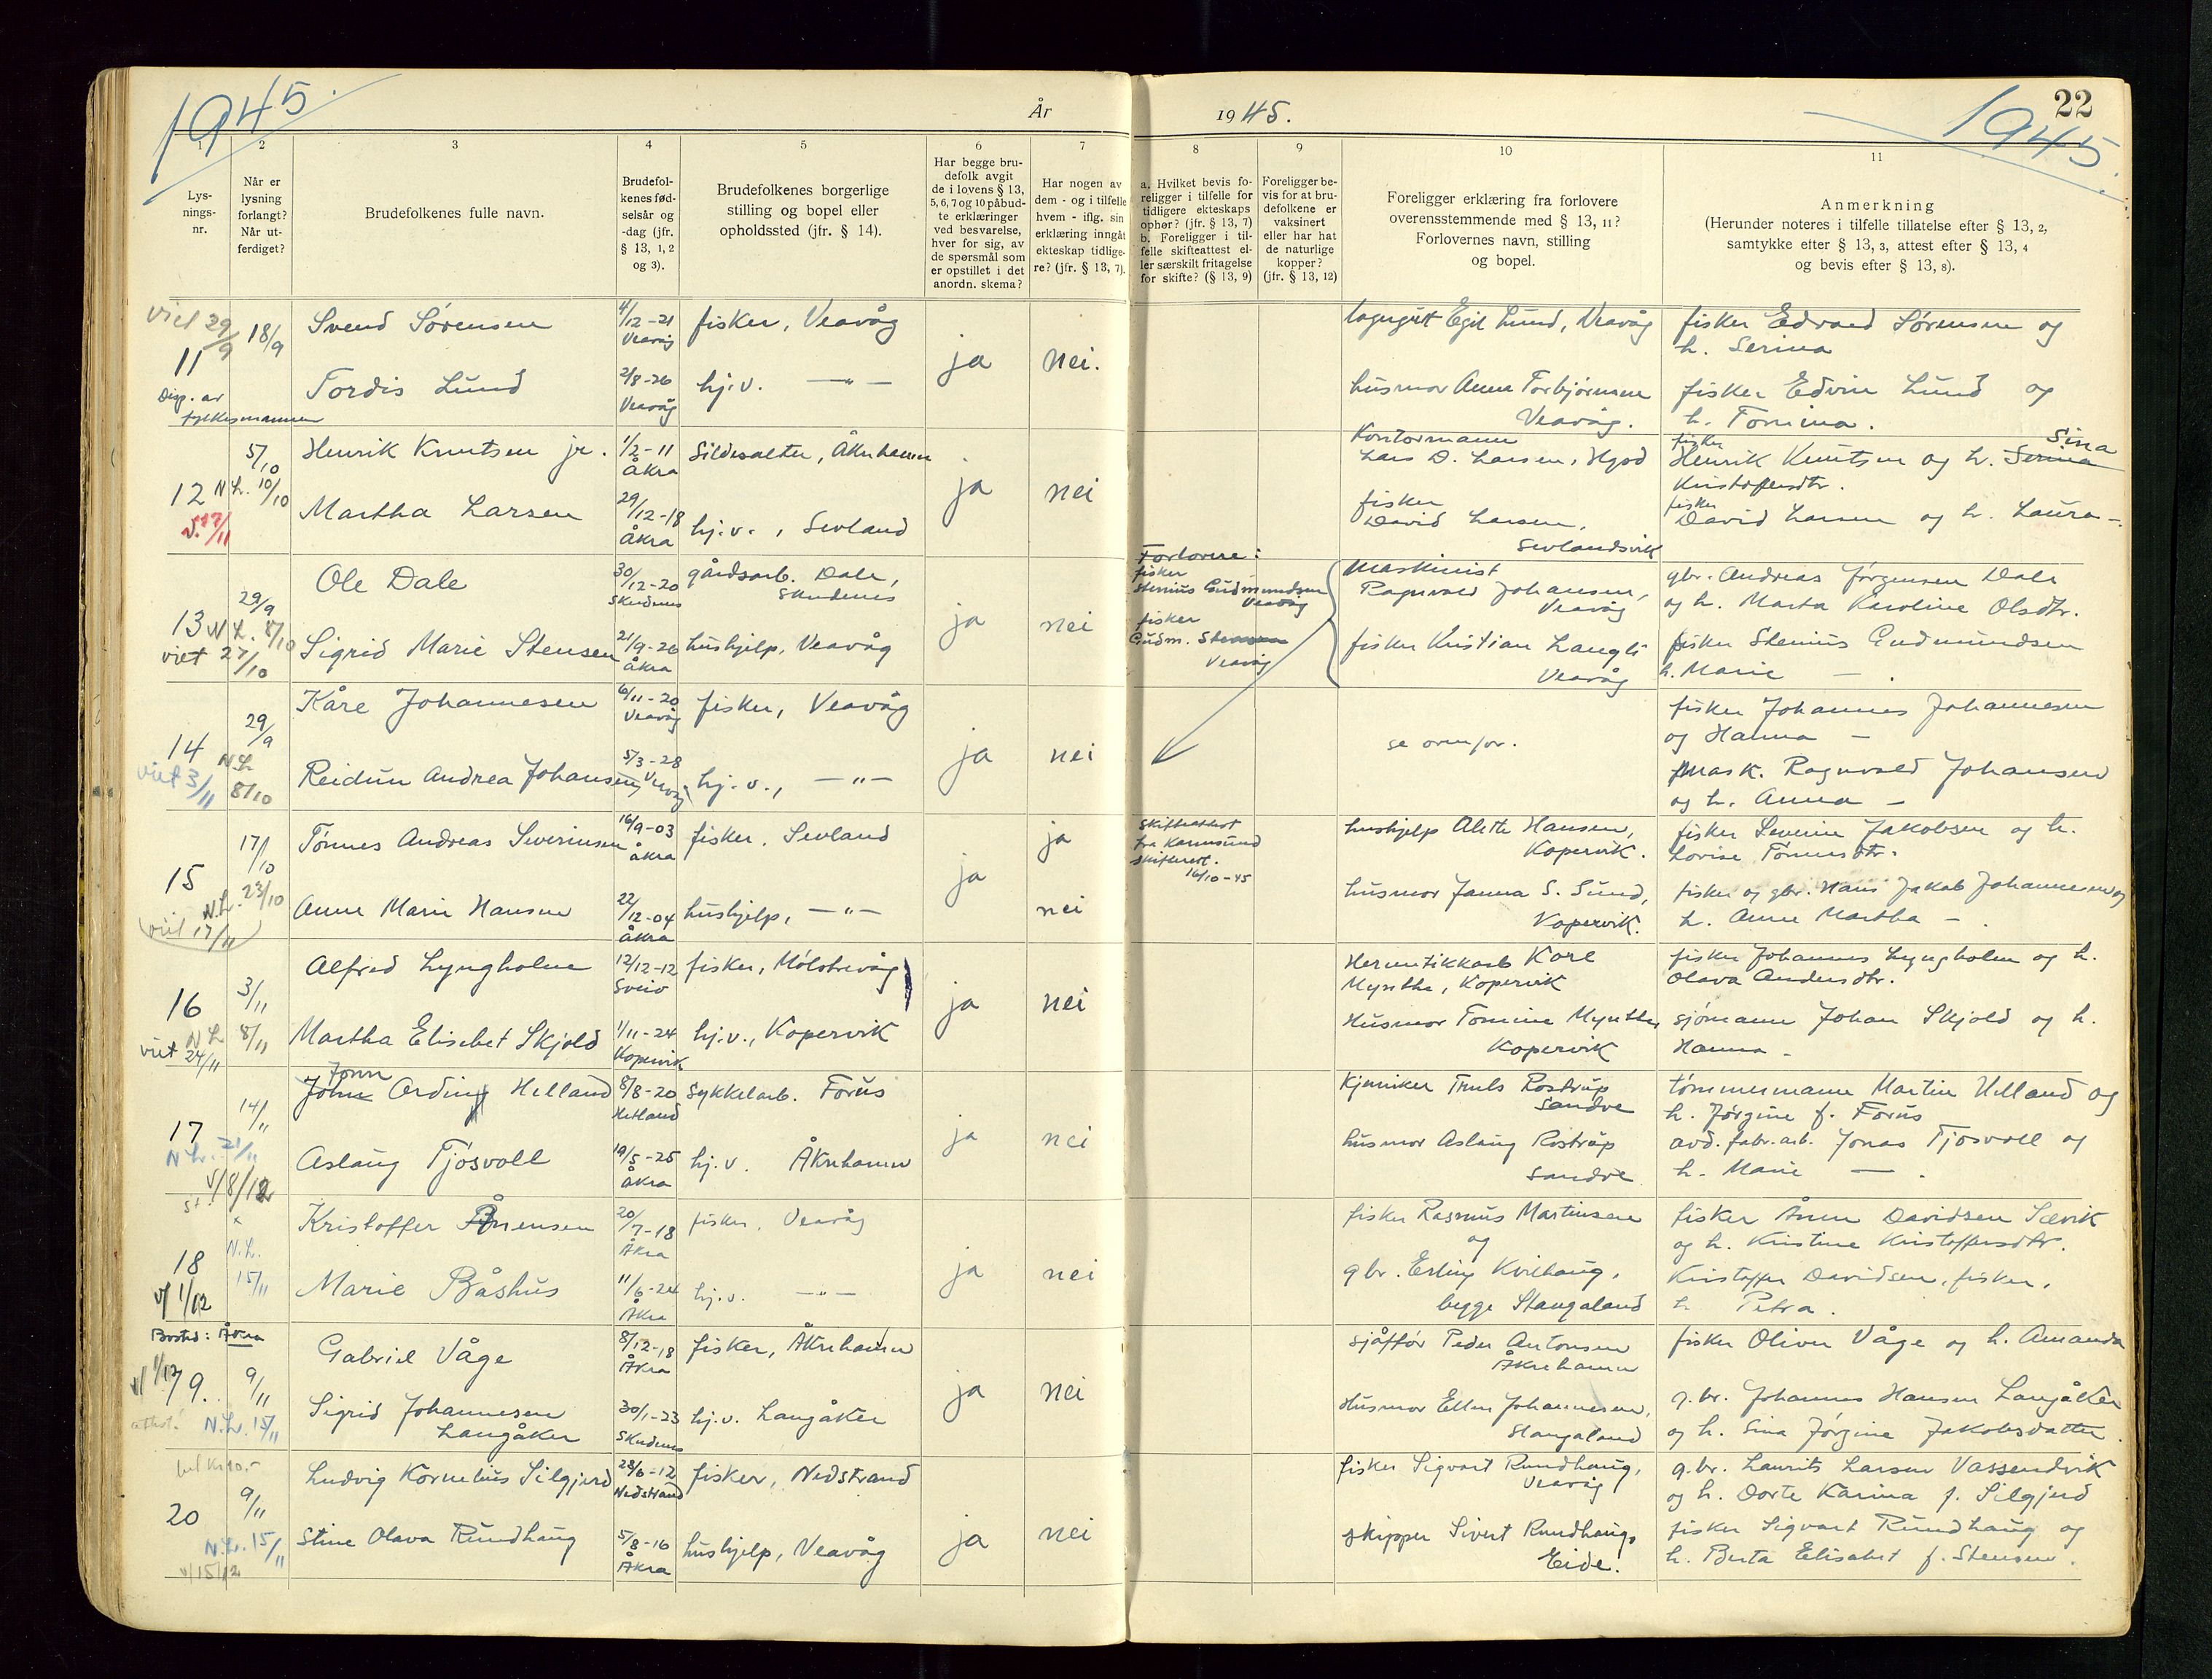 1945.
År
1945.
1945.
22
1
Lys-
nings-
nr.
2
Når er
lysning
forlangt?
Når ut-
ferdiget?
3
Brudefolkenes fulle navn.
4
Brudefol-
kenes fød-
selsår og
-dag (jfr.
§ 13, 1, 2
og 3).
5
Brudefolkenes borgerlige
stilling og bopel eller
opholdssted (jfr. § 14).
6
Har begge bru-
defolk avgit
de i lovens § 13,
5, 6, 7 og 10 påbud-
te erklæringer
ved besvarelse,
hver for sig, av
de spørsmål som
er opstillet i det
anordn. skema?
7
Har nogen av
dem - og i tilfelle
hvem - iflg. sin
erklæring inngåt
ekteskap tidlige-
re? (jfr. § 13, 7).
8
a. Hvilket bevis fo-
religger i tilfelle for
tidligere ekteskaps
ophør? (jfr. § 13, 7)
b. Foreligger i til-
felle skifteattest el-
ler særskilt fritagelse
for skifte? (§ 13, 9)
9
Foreligger be-
vis for at bru-
defolkene er
vaksinert
eller har hat
de naturlige
kopper?
(jfr. § 13, 12)
10
Foreligger erklæring fra forlovere
overensstemmende med § 13, 11?
Forlovernes navn, stilling
og bopel.
11
Anmerkning
(Herunder noteres i tilfelle tillatelse efter § 13, 2,
samtykke efter § 13, 3, attest efter § 13, 4
og bevis efter § 13, 8).
viet 29/9
11
Disp. av
fylkesmannen
18/9
Svend Sørensen
4/12-21
Veavåg
fisker, Veavåg
Tordis Lund
2/8-26
Veavåg
hj.v. —"—
ja
nei.
Egil Lund, Veavåg
husmor Anna Torbjørnsen
Veavåg.
fisker Edvard Sørensen og
h. Serina
fisker Edvin Lund og
h. Tomina.
12
5/10
N.L. 10/10
Henrik Knutsen jr.
1/2-11
Åkra
Sildesalter, Åkrehamn
Martha Larsen
29/12-18
Åkra
hj.v., Sevland
ja
nei
Kontormann
Lars D. Larsen,
fisker
David Larsen,
Sevlandsvik
fisker
Henrik Knutsen og h. Serina Sina
Kristoffersdtr.
fisker
David Larsen og h. Laura —.
13
29/9
N.L. 8/10
viet 27/10
Ole Dale
30/12-20
Skudenes
gårdsarb. Dale,
Skudenes
Sigrid Marie Stensen
21/9-26
Åkra
hushjelp, Veavåg
ja
nei
Forlovere:
fisker
Stenius Gudmundsen
Veavåg
fisker
Gudm. Stensen
Veavåg
Maskinist
Ragnvald Johansen,
Veavåg
fisker Kristian Langli
Veavåg
gbr. Andreas Jørgensen Dale
og h. Marta Karoline Olsdtr.
fisker Stenius Gudmundsen
h. Marie — .
14
29/9
N.L.
8/10
viet 3/11
Kåre Johannesen
6/11-20
Veavåg
fisker, Veavåg
Reidun Andrea Johansen
5/3-28
Veavåg
hj.v., —"—
ja
nei
se ovenfor.
fisker Johannes Johannesen
og Hanna —
Mask. Ragnvald Johansen
og h. Anna —
15
17/10
N.L. 23/10
(viet 17/11)
Tønnes Andreas Severinsen
16/9-03
Åkra
fisker, Sevland
Anne Marie Hansen
22/12-04
Åkra
hushjelp, —"—
ja
ja
nei
Skifteattest
fra Karmsund
skifterett.
16/10-45
hushjelp Alette Hansen,
Kopervik.
husmor Janna S. Sund,
Kopervik.
fisker Severin Jakobsen og h.
Lovise Tønnesdtr.
fisker og gbr. Hans Jakob Johannesen og
h. Anne Martha —
16
3/11
N.L. 8/11
viet 24/11
Alfred Lyngholm
12/12-12
Sveio
fisker, Mølstrevåg
Martha Elisebet Skjold
1/11-24
Kopervik
hj.v., Kopervik
ja
nei
Hermetikkarb Kore
Mynthe, Kopervik
Husmor Tomine Mynthe,
Kopervik
fisker Johannes Lyngholm og h.
Olava Andersdtr.
sjømann Johan Skjold og h.
Hanna —
17
14/11
N.L. 21/11
v/8/12
Jonn
John Arding Helland
8/8-20
Hetland
Sykkelarb. Forus
Aslaug Tjøsvoll
19/5-25
Åkra
hj.v. Åkrehamn
ja
nei
Kjemiker Truls Rostrup
Sandve
husmor Aslaug Rostrup
Sandve
tømmermann Martin Helland og
h. Jørgine f. Forus
avd. fabr.arb. Jonas Tjøsvoll og
h. Marie — .
18
N.L.
15/11
v/ 1/12
Kristoffer Årnensen
20/7-18
Åkra
fisker, Veavåg
Marie Båshus
11/6-24
Åkra
hj.v. —"—
ja
nei
fisker Rasmus Martinsen
og
gbr. Erling Kvilhaug,
begge Stangaland
fisker Davidsen Sævik
og h. Kristine Kristoffersdtr.
Kristoffer Davidsen, fisker,
h. Petra.
Bosted: Åkra
v/ 1/12
19.
9/11
N.L. 15/11
Gabriel Våge
8/12-18
Åkra
fisker, Åkrehamn
Sigrid Johannesen
Langåker
30/1-23
Skudenes
hj.v. Langåker
ja
nei
sjåffør Peder Antonsen
Åkrehamn
Husmor Ellen Johannesen,
Stangaland
fisker Oliver Våge og h. Amanda
g.br. Johannes Hansen Langåker
og h. Sina Jørgine Jakobsdatter.
20
9/11
N.L. 15/11
v/15/12
Ludvig Kornelius Silgjerd
28/6-12
Nedstrand
fisker, Nedstrand
Stine Olava Rundhaug
5/8-16
Åkra
hushjelp, Veavåg
ja
nei
fisker Sigvart Rundhaug,
Veavåg
skipper Sivert Rundhaug,
Eide.
g.br. Laurits Larsen Vassendvik
og h. Dorte Karina f. Silgjerd
fisker Sigvart Rundhaug og
h. Berta Elisabet f. Stensen.